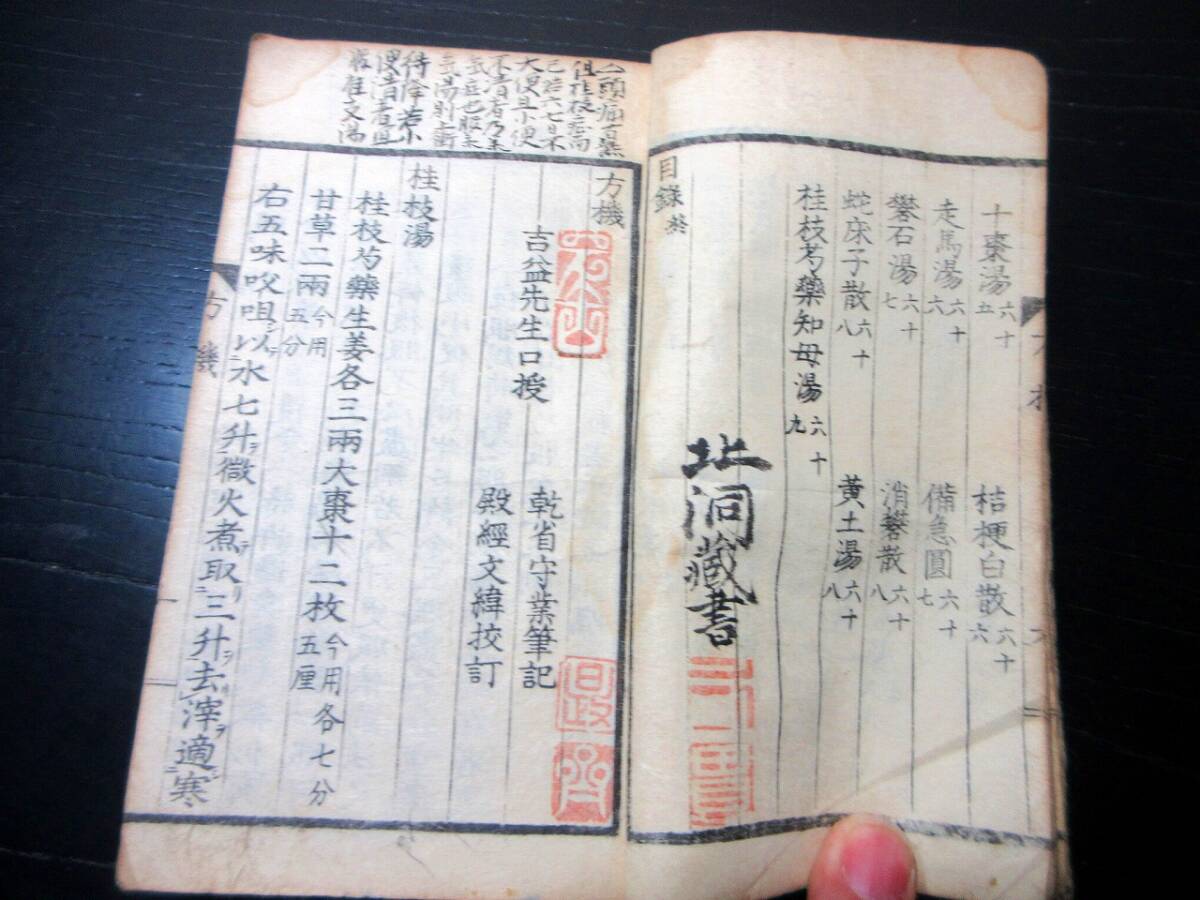 十棗湯 六十五
桔梗白散 六十六
走馬湯 六十六
備急圓 六十七
礬石湯 六十七
消礬散 六十八
蛇床子散 六十八
黃土湯 六十八
桂枝芍藥知母湯 六十九
目錄終
北洞藏書
方機
吉益先生口授
乾省守業筆記
殿經文緯挍訂
桂枝湯
桂枝芍藥生姜各三兩大棗十二枚 今用各七分五厘
甘草二兩 今用五分
右五味㕮咀以水七升微火煮取三升去滓適寒
方機
大便且小便
待降若小
便清者